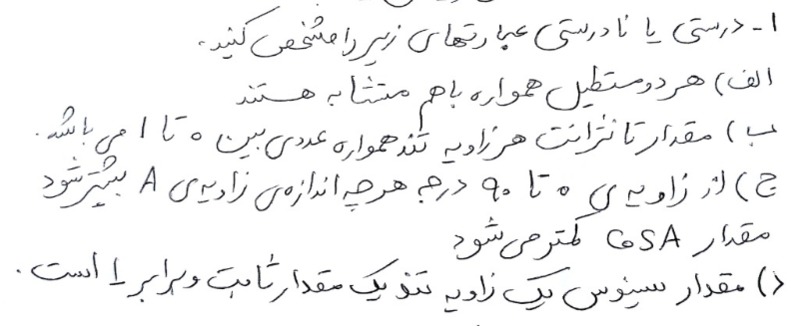 ۱- درستی یا نادرستی عبارتهای زیر را مشخص کنید.
الف) هر دو مستطیل همواره باهم متشابه هستند
ب) مقدار تانژانت هر زاویه تند همواره عددی بین ۰ تا ۱ می باشد.
ج) از زاویه ی ۰ تا ۹۰ درجه هر چه اندازه ی زاویه ی A بیشتر شود
مقدار CosA کمتر می شود
د) مقدار سینوس یک زاویه تند یک مقدار ثابت و برابر ۱ است.